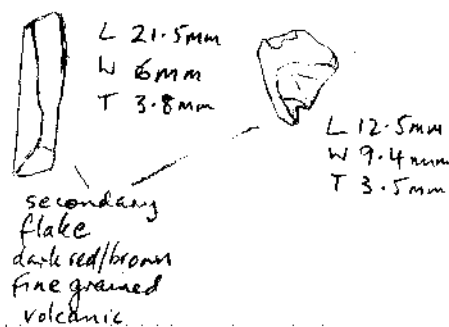 L 21.5mm
W 6mm
T 3.8mm
L 12.5mm
W 9.4mm
T 3.5mm
secondary
flake
dark red/brown
fine grained
volcanic